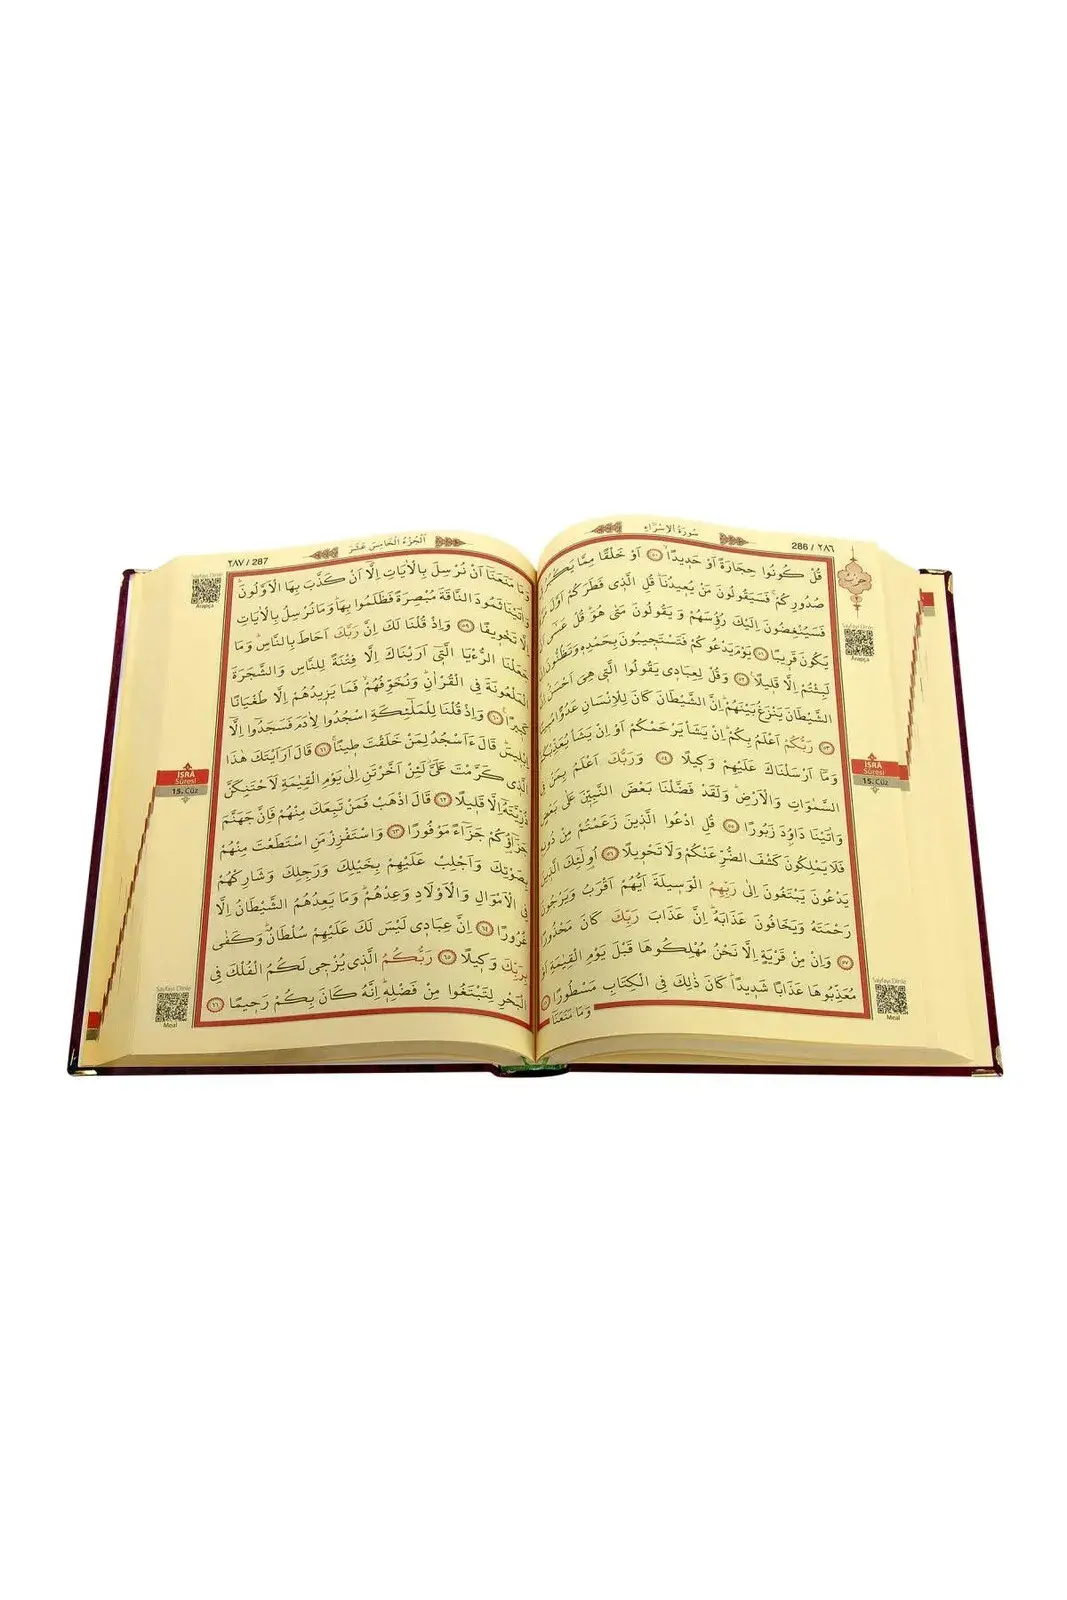 سُورَةُ الْاِسْرَاءِ
286 / ٢٨٦
قُلْ كُونُوا حِجَارَةً اَوْ حَدٖيدًاۙ ﴿٥٠﴾ اَوْ خَلْقًا مِمَّا يَكْبُرُ
صُدُورِكُمْۚ فَسَيَقُولُونَ مَنْ يُعٖيدُنَاۜ قُلِ الَّذٖي فَطَرَكُمْ اَوَّلَ
فَسَيُنْغِضُونَ اِلَيْكَ رُؤُ۫سَهُمْ وَيَقُولُونَ مَتٰى هُوَۜ قُلْ عَسٰٓى
يَكُونَ قَرٖيبًا ﴿٥١﴾ يَوْمَ يَدْعُوكُمْ فَتَسْتَجٖيبُونَ بِحَمْدِهٖ وَتَظُنُّونَ
لَبِثْتُمْ اِلَّا قَلٖيلًا۟ ﴿٥٢﴾ وَقُلْ لِعِبَادٖي يَقُولُوا الَّتٖي هِيَ اَحْسَنُۜ
الشَّيْطَانَ يَنْزَغُ بَيْنَهُمْۜ اِنَّ الشَّيْطَانَ كَانَ لِلْاِنْسَانِ عَدُوًّا
﴿٥٣﴾ رَبُّكُمْ اَعْلَمُ بِكُمْۜ اِنْ يَشَأْ يَرْحَمْكُمْ اَوْ اِنْ يَشَأْ يُعَذِّبْكُمْۜ
وَمَٓا اَرْسَلْنَاكَ عَلَيْهِمْ وَكٖيلًا ﴿٥٤﴾ وَرَبُّكَ اَعْلَمُ بِمَنْ فِي
السَّمٰوَاتِ وَالْاَرْضِۜ وَلَقَدْ فَضَّلْنَا بَعْضَ النَّبِيّٖنَ عَلٰى بَعْضٍ
وَاٰتَيْنَا دَاوُ۫دَ زَبُورًا ﴿٥٥﴾ قُلِ ادْعُوا الَّذٖينَ زَعَمْتُمْ مِنْ دُونِهٖ
فَلَا يَمْلِكُونَ كَشْفَ الضُّرِّ عَنْكُمْ وَلَا تَحْوٖيلًا ﴿٥٦﴾ اُو۬لٰٓئِكَ الَّذٖينَ
يَدْعُونَ يَبْتَغُونَ اِلٰى رَبِّهِمُ الْوَسٖيلَةَ اَيُّهُمْ اَقْرَبُ وَيَرْجُونَ
رَحْمَتَهُ وَيَخَافُونَ عَذَابَهُۜ اِنَّ عَذَابَ رَبِّكَ كَانَ مَحْذُورًا
﴿٥٧﴾ وَاِنْ مِنْ قَرْيَةٍ اِلَّا نَحْنُ مُهْلِكُوهَا قَبْلَ يَوْمِ الْقِيٰمَةِ اَوْ
مُعَذِّبُوهَا عَذَابًا شَدٖيدًاۜ كَانَ ذٰلِكَ فِي الْكِتَابِ مَسْطُورًا
وَمَا مَنَعَنَٓا
Sayfayı Dinle
Arapça
İSRÂ
Sûresi
15. Cüz
Sayfayı Dinle
Meal
٢٨٧ / 287
اَلْجُزْءُ الْخَامِسَ عَشَرَ
وَمَا مَنَعَنَٓا اَنْ نُرْسِلَ بِالْاٰيَاتِ اِلَّٓا اَنْ كَذَّبَ بِهَا الْاَوَّلُونَۜ
وَاٰتَيْنَا ثَمُودَ النَّاقَةَ مُبْصِرَةً فَظَلَمُوا بِهَاۜ وَمَا نُرْسِلُ بِالْاٰيَاتِ
اِلَّا تَخْوٖيفًا ﴿٥٩﴾ وَاِذْ قُلْنَا لَكَ اِنَّ رَبَّكَ اَحَاطَ بِالنَّاسِۜ وَمَا
جَعَلْنَا الرُّءْيَا الَّتٖٓي اَرَيْنَاكَ اِلَّا فِتْنَةً لِلنَّاسِ وَالشَّجَرَةَ
الْمَلْعُونَةَ فِي الْقُرْاٰنِۜ وَنُخَوِّفُهُمْۙ فَمَا يَزٖيدُهُمْ اِلَّا طُغْيَانًا
كَبٖيرًا۟ ﴿٦٠﴾ وَاِذْ قُلْنَا لِلْمَلٰٓئِكَةِ اسْجُدُوا لِاٰدَمَ فَسَجَدُٓوا اِلَّٓا
اِبْلٖيسَۜ قَالَ ءَاَسْجُدُ لِمَنْ خَلَقْتَ طٖينًاۚ ﴿٦١﴾ قَالَ اَرَاَيْتَكَ هٰذَا
الَّذٖي كَرَّمْتَ عَلَيَّۘ لَئِنْ اَخَّرْتَنِ اِلٰى يَوْمِ الْقِيٰمَةِ لَاَحْتَنِكَنَّ
ذُرِّيَّتَهُٓ اِلَّا قَلٖيلًا ﴿٦٢﴾ قَالَ اذْهَبْ فَمَنْ تَبِعَكَ مِنْهُمْ فَاِنَّ جَهَنَّمَ
جَزَٓاؤُ۬كُمْ جَزَٓاءً مَوْفُورًا ﴿٦٣﴾ وَاسْتَفْزِزْ مَنِ اسْتَطَعْتَ مِنْهُمْ
بِصَوْتِكَ وَاَجْلِبْ عَلَيْهِمْ بِخَيْلِكَ وَرَجِلِكَ وَشَارِكْهُمْ
فِي الْاَمْوَالِ وَالْاَوْلَادِ وَعِدْهُمْۜ وَمَا يَعِدُهُمُ الشَّيْطَانُ اِلَّا
غُرُورًا ﴿٦٤﴾ اِنَّ عِبَادٖي لَيْسَ لَكَ عَلَيْهِمْ سُلْطَانٌۜ وَكَفٰى
بِرَبِّكَ وَكٖيلًا ﴿٦٥﴾ رَبُّكُمُ الَّذٖي يُزْجٖي لَكُمُ الْفُلْكَ فِي
الْبَحْرِ لِتَبْتَغُوا مِنْ فَضْلِهٖۜ اِنَّهُ كَانَ بِكُمْ رَحٖيمًا ﴿٦٦﴾
Sayfayı Dinle
Arapça
İSRÂ
Sûresi
15. Cüz
Sayfayı Dinle
Meal